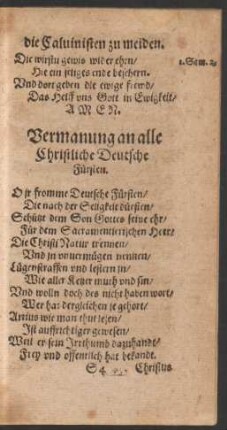 die Caluinisten zu meiden.
Die wirstu gewis wider ehrn/ 1. Sam. 2.
Hie ein seliges ende beschern.
Vnd dort geben die ewige frewd/
Das Helff vns Gott in Ewigkeit/
A M E N.
Vermanung an alle
Christliche Deutsche
Fürsten.
O jr fromme Deutsche Fürsten/
Die nach der Seligkeit dürsten/
Schützt dem Son Gottes seine ehr/
Für dem Sacramentierischen Heer/
Die Christi Natur trennen/
Vnd zu vnuermügen nennen/
Lügnstraffen vnd lestern jn/
Wie aller Ketzer muth vnd sin/
Vnd wolln doch des nicht haben wort/
Wer hat dergleichen je gehort/
Arrius wie man thut lesen/
Ist auffrichtiger gewesen/
Weil er sein Irrthumb dazuhandt/
Frey vnd offentlich hat bekandt.
Christus